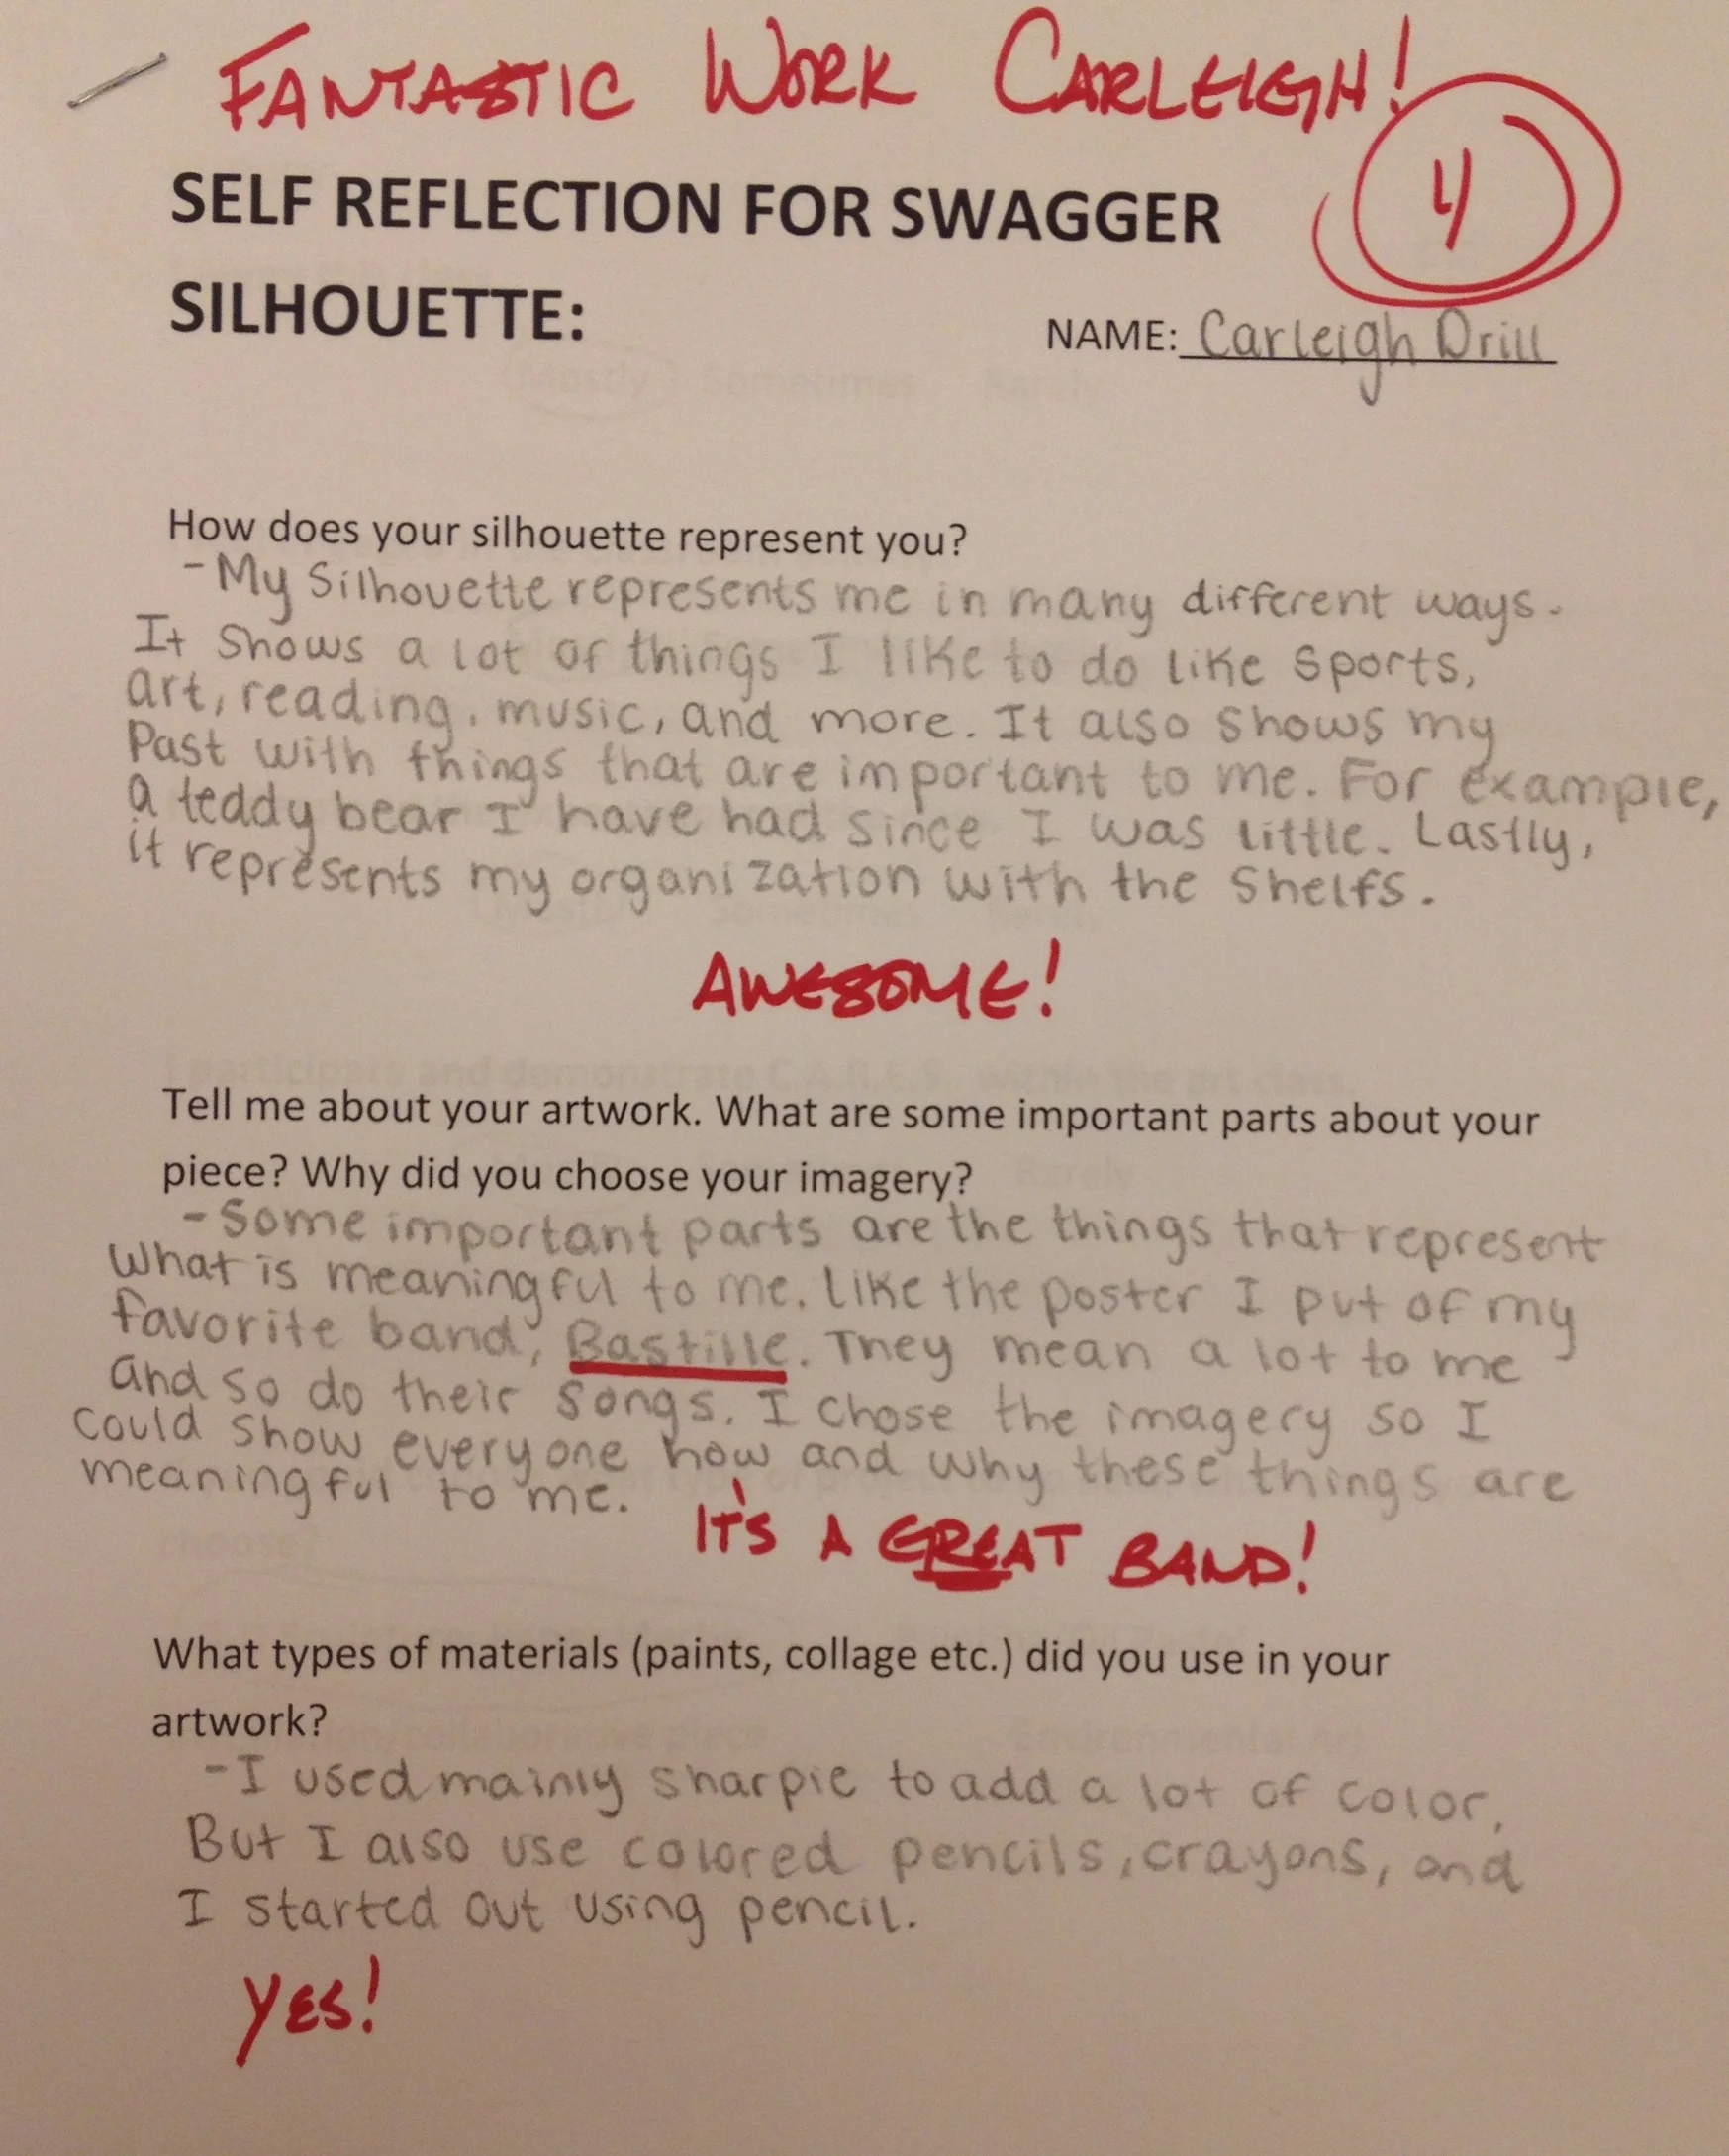 FANTASTIC WORK CARLEIGH!
4
SELF REFLECTION FOR SWAGGER
SILHOUETTE:
NAME: Carleigh Drill
How does your silhouette represent you?
- My Silhouette represents me in many different ways.
It Shows a lot of things I like to do like Sports,
art, reading, music, and more. It also shows my
Past with things that are important to me. For example,
a teddy bear I have had since I was little. Lastly,
it represents my organization with the Shelfs.
AWESOME!
Tell me about your artwork. What are some important parts about your
piece? Why did you choose your imagery?
- Some important parts are the things that represent
What is meaningful to me. Like the poster I put of my
favorite band, Bastille. They mean a lot to me
and so do their songs. I chose the imagery so I
Could show everyone how and why these things are
meaningful to me.
IT'S A GREAT BAND!
What types of materials (paints, collage etc.) did you use in your
artwork?
- I used mainly sharpie to add a lot of color.
But I also use colored pencils, crayons, and
I started out using pencil.
YES!